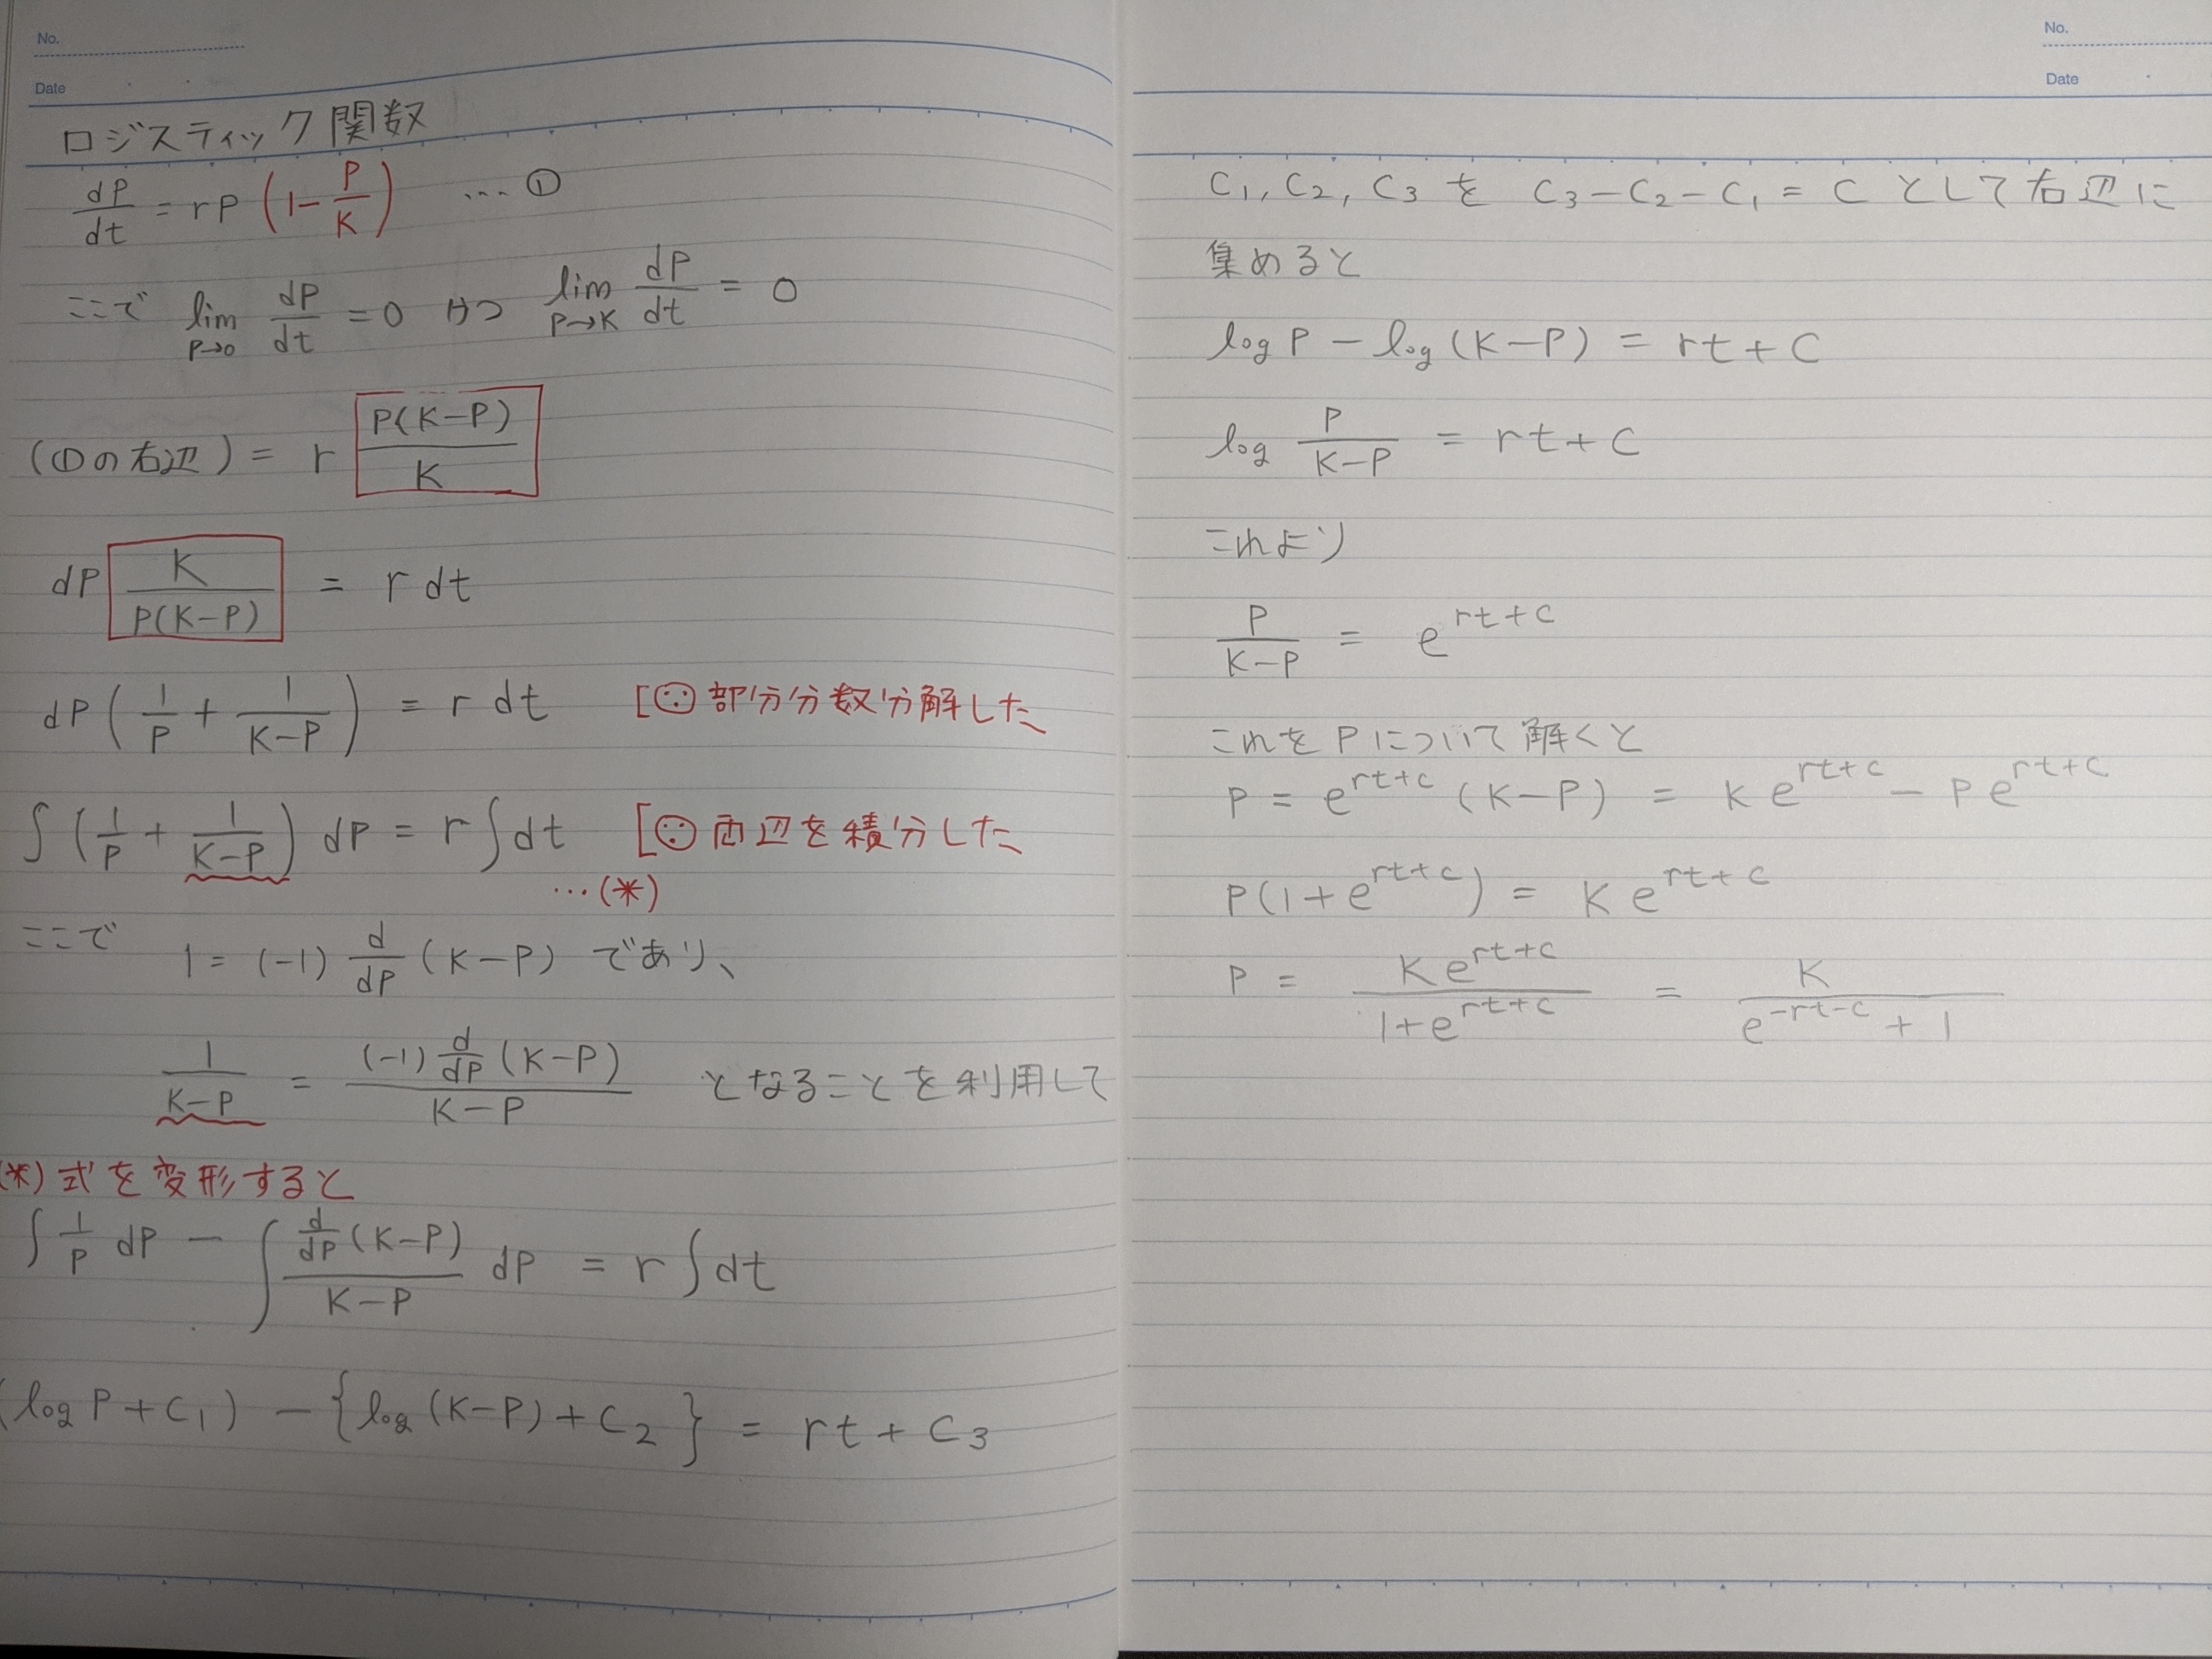 No.
Date
ロジスティック関数
dP/dt = rP (1 - P/K) … ①
ここで lim_{P→0} dP/dt = 0 かつ lim_{P→K} dP/dt = 0
(①の右辺) = r P(K-P)/K
dP K/P(K-P) = r dt
dP (1/P + 1/(K-P)) = r dt [∵ 部分分数分解した
∫ (1/P + 1/(K-P)) dP = r ∫ dt [∵ 両辺を積分した
…(*)
ここで 1 = (-1) d/dP (K-P) であり、
1/(K-P) = (-1) d/dP (K-P) / (K-P) となることを利用して
(*) 式を変形すると
∫ 1/P dP - ∫ d/dP (K-P) / (K-P) dP = r ∫ dt
(log P + C₁) - {log (K-P) + C₂} = rt + C₃
No.
Date
C₁, C₂, C₃ を C₃ - C₂ - C₁ = C として右辺に
集めると
log P - log (K-P) = rt + C
log P/(K-P) = rt + C
これより
P/(K-P) = e^{rt+C}
これをPについて解くと
P = e^{rt+C} (K-P) = K e^{rt+C} - P e^{rt+C}
P(1 + e^{rt+C}) = K e^{rt+C}
P = K e^{rt+C} / (1 + e^{rt+C}) = K / (e^{-rt-C} + 1)